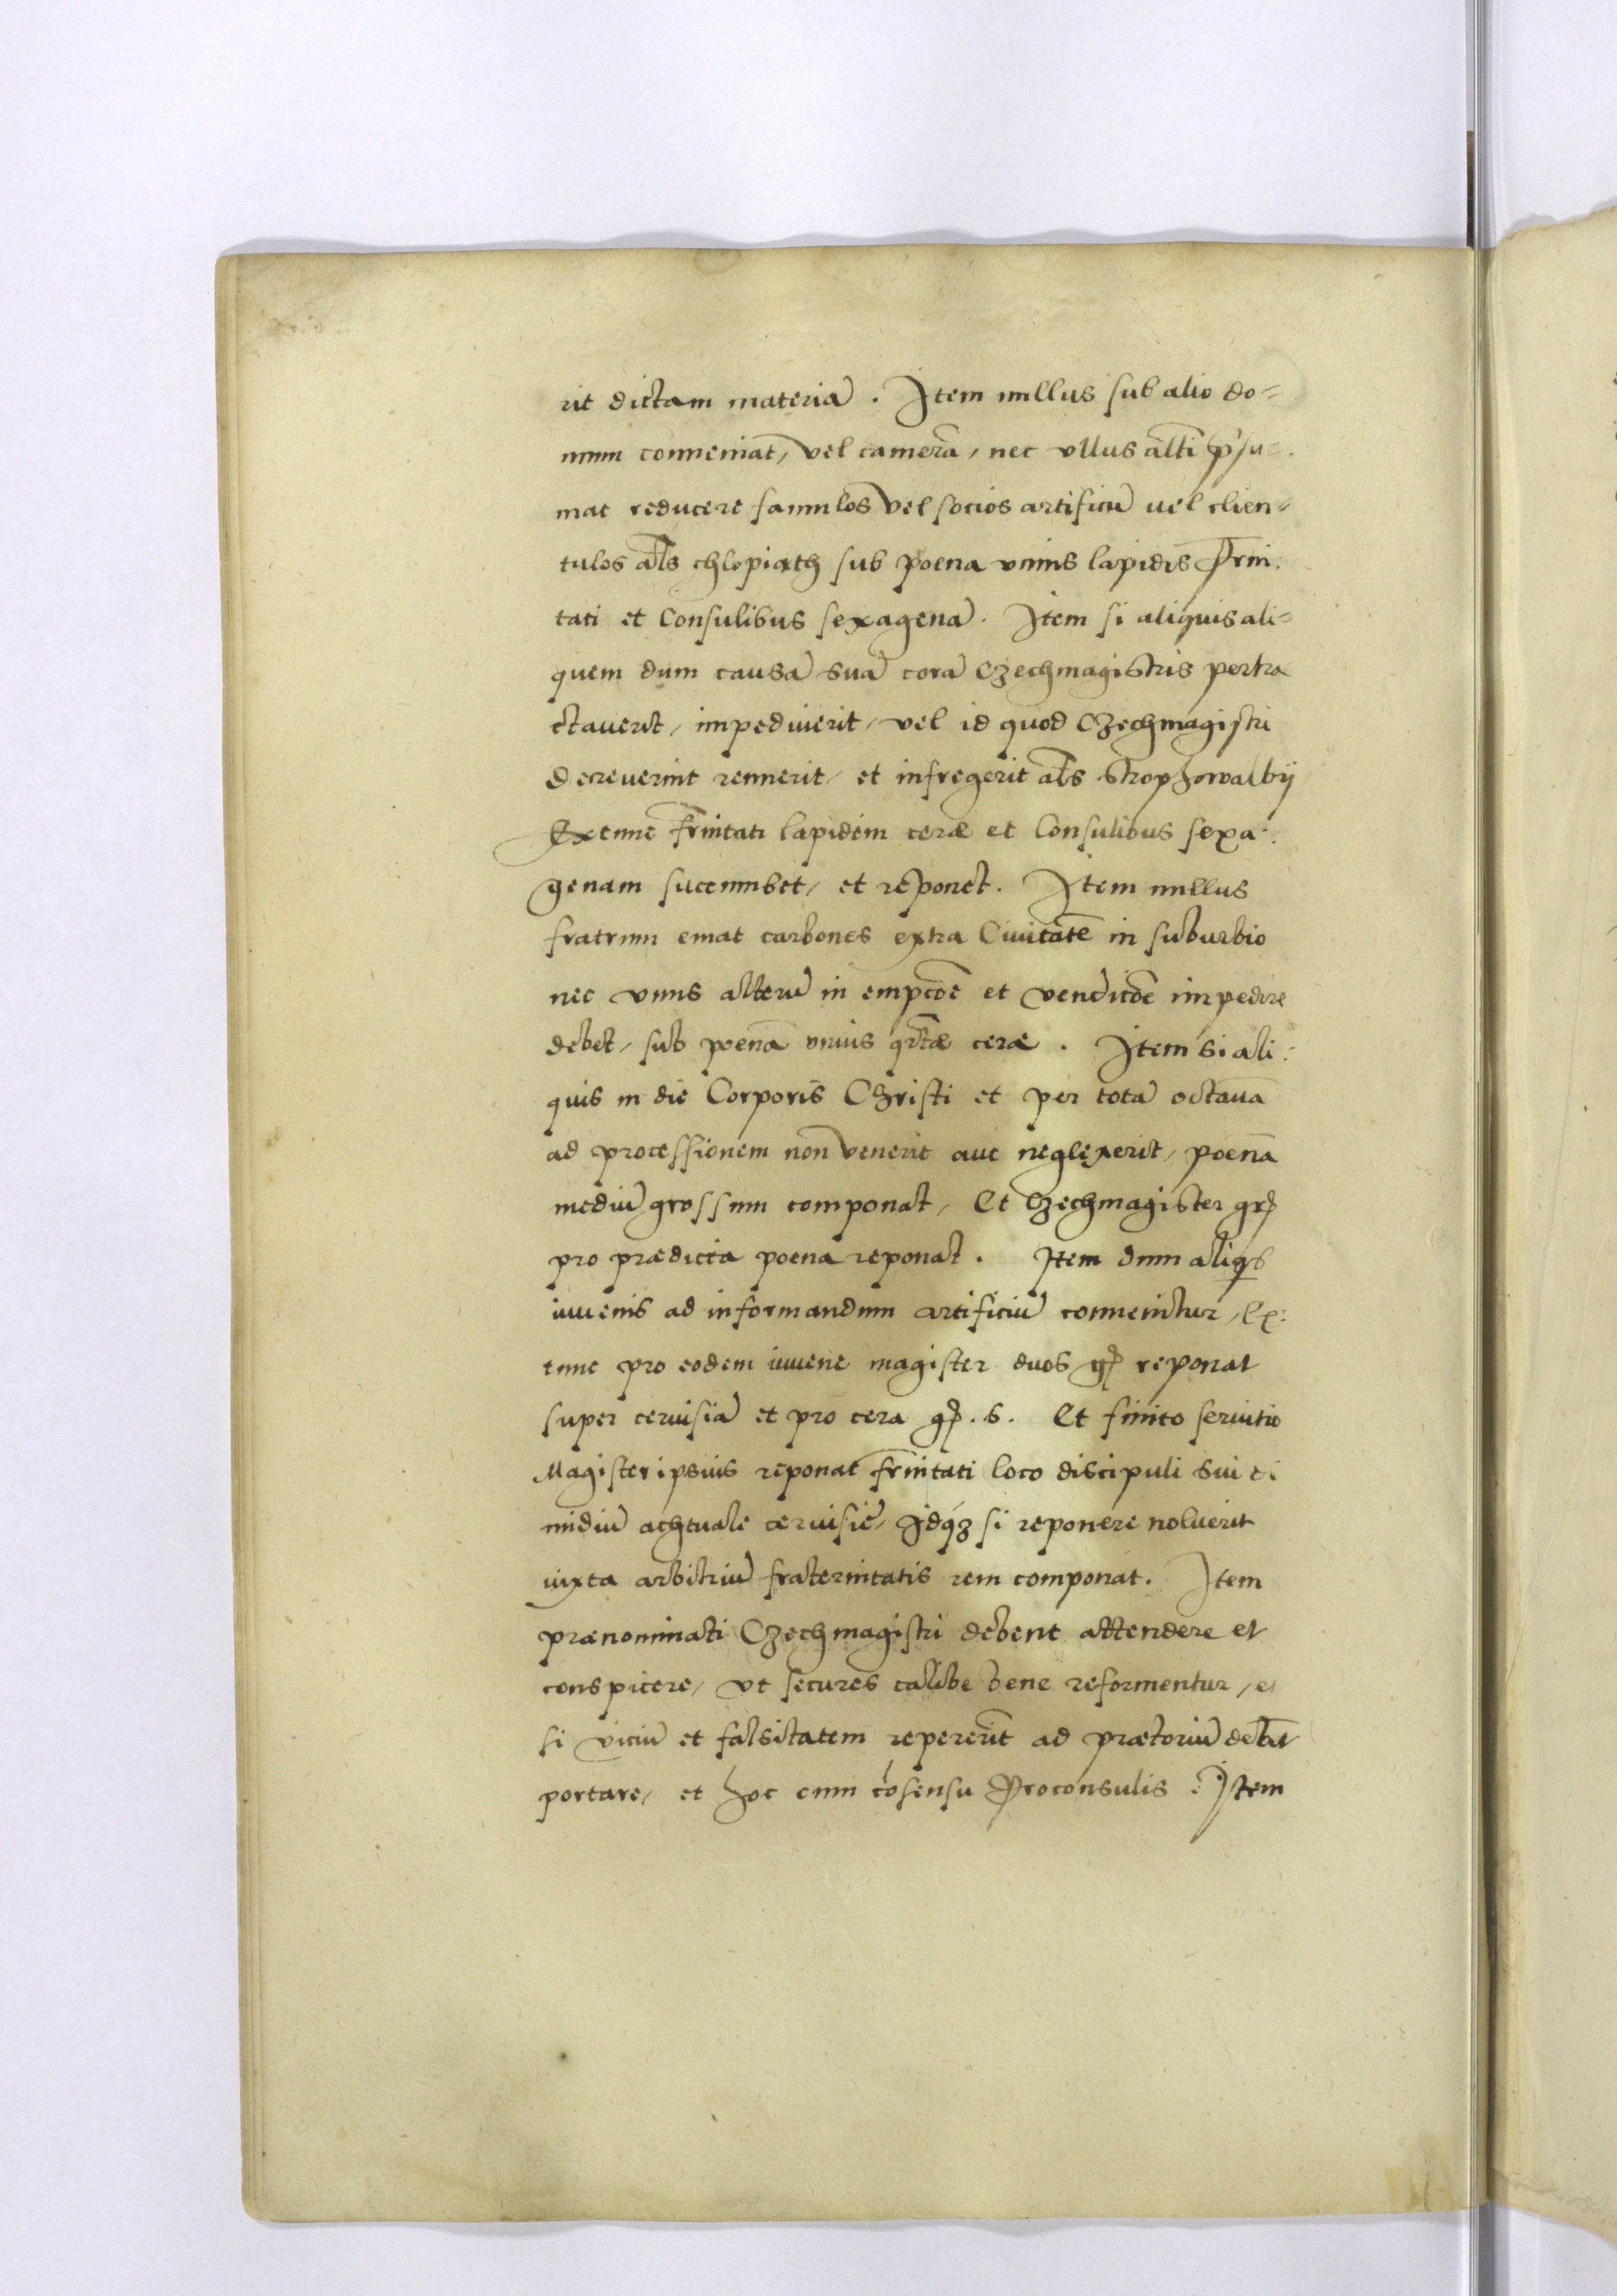 rit dictam materiā. Item nullus sub alio do=
mum conueniat, vel camerā, nec vllus altī p̄su=
mat reducere famulos vel socios artificiū uel clien,
tulos als̄ chlopiath sub poena vnius lapidis Frni:
tati et Consulibus sexagenā. Item si aliquis ali=
quem dum causā suā corā Czechmagistris pertra
ctauerit, impediuerit, vel id quod Czechmagistri
decreuerint rennerit, et infregerit als̄ strophowalbÿ
Extunc frnītati lapidem ceræ et Consulibus sexa:
genam succumbet, et reponet. Item nullus
fratrum emat carbones extra Ciuitatē in suburbio
nec vnus alterū in empcōē et vendicōē impedire
debet, sub poenā vnius qrtæ ceræ. Item si ali:
quis in die Corporis Christi et per totā octauā
ad processionem non venerit aut neglexerit, poenā
mediū grossum componat, Et Czechmagister gr̄
pro prædicta poena reponat. Item dum aliqs
iuuenis ad informandum artificiū conuenitur, Ex:
tunc pro eodem iuuene magister duos gr̄ reponat
super ceruisiā et pro cera gr̄. 6. Et finito seruitio
Magister ipsius reponat frnītati loco discipuli sui di
midiū achtuale ceruisiē, Idqȝ si reponere noluerit
iuxta arbitriū fraternitatis rem componat. Item
prænominati Czechmagistri debent attendere et
conspicere, vt secures calibe bene reformentur, et
si viciū et falsitatem repererīt ad prætoriū debēt
portare, et hoc cum cōsensu Proconsulis : Item